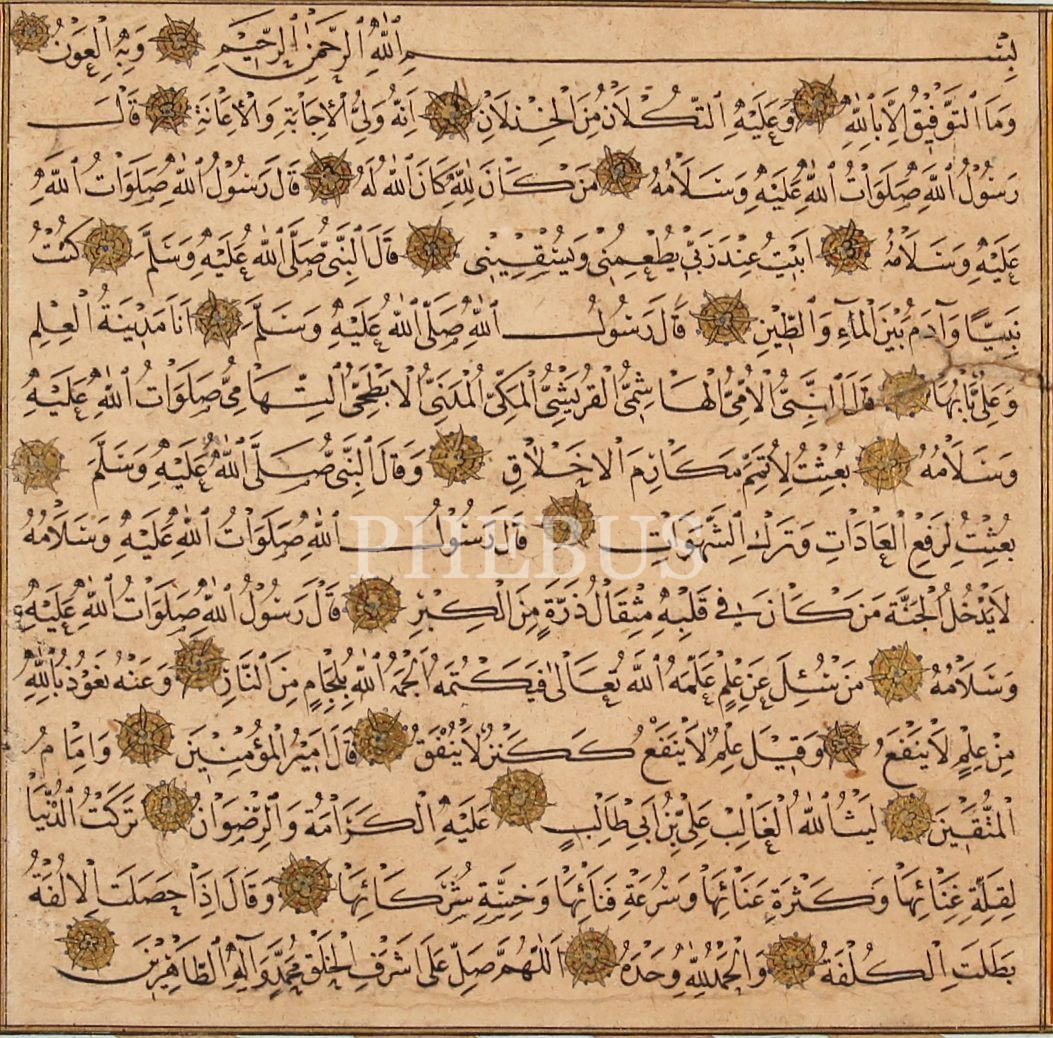 بِسْمِ اللهِ الرَّحْمَنِ الرَّحِيمِ وَبِهِ الْعَوْنُ
وَمَا التَّوْفِيقُ إِلَّا بِاللهِ وَعَلَيْهِ التُّكْلَانُ مِنَ الْخِذْلَانِ إِنَّهُ وَلِيُّ الْإِجَابَةِ وَالْإِعَانَةِ قَالَ
رَسُولُ اللهِ صَلَوَاتُ اللهِ عَلَيْهِ وَسَلَامُهُ مَنْ كَانَ لِلهِ كَانَ اللهُ لَهُ قَالَ رَسُولُ اللهِ صَلَوَاتُ اللهِ
عَلَيْهِ وَسَلَامُهُ أَبِيتُ عِنْدَ رَبِّي يُطْعِمُنِي وَيَسْقِينِي قَالَ النَّبِيُّ صَلَّى اللهُ عَلَيْهِ وَسَلَّمَ كُنْتُ
نَبِيًّا وَآدَمُ بَيْنَ الْمَاءِ وَالطِّينِ قَالَ رَسُولُ اللهِ صَلَّى اللهُ عَلَيْهِ وَسَلَّمَ أَنَا مَدِينَةُ الْعِلْمِ
وَعَلِيٌّ بَابُهَا قَالَ النَّبِيُّ الْأُمِّيُّ الْهَاشِمِيُّ الْقُرَيْشِيُّ الْمَكِّيُّ الْمَدَنِيُّ الْأَبْطَحِيُّ التِّهَامِيُّ صَلَوَاتُ اللهِ عَلَيْهِ
وَسَلَامُهُ بُعِثْتُ لِأُتَمِّمَ مَكَارِمَ الْأَخْلَاقِ وَقَالَ النَّبِيُّ صَلَّى اللهُ عَلَيْهِ وَسَلَّمَ
بُعِثْتُ لِرَفْعِ الْعَادَاتِ وَتَرْكِ الشَّهَوَاتِ قَالَ رَسُولُ اللهِ صَلَوَاتُ اللهِ عَلَيْهِ وَسَلَامُهُ
لَا يَدْخُلُ الْجَنَّةَ مَنْ كَانَ فِي قَلْبِهِ مِثْقَالُ ذَرَّةٍ مِنَ الْكِبْرِ قَالَ رَسُولُ اللهِ صَلَوَاتُ اللهِ عَلَيْهِ
وَسَلَامُهُ مَنْ سُئِلَ عَنْ عِلْمٍ عَلَّمَهُ اللهُ تَعَالَى فَيَكْتُمُهُ أَلْجَمَهُ اللهُ بِلِجَامٍ مِنَ النَّارِ وَعَنْهُ نَعُوذُ بِاللهِ
مِنْ عِلْمٍ لَا يَنْفَعُ وَقِيلَ عِلْمٌ لَا يَنْفَعُ كَكَنْزٍ لَا يُنْفَقُ قَالَ أَمِيرُ الْمُؤْمِنِينَ وَإِمَامُ
الْمُتَّقِينَ لَيْثُ اللهِ الْغَالِبُ عَلِيُّ بْنُ أَبِي طَالِبٍ عَلَيْهِ الْكَرَامَةُ وَالرِّضْوَانُ تَرَكْتُ الدُّنْيَا
لِقِلَّةِ غَنَائِهَا وَكَثْرَةِ عَنَائِهَا وَسُرْعَةِ فَنَائِهَا وَخِسَّةِ شُرَكَائِهَا وَقَالَ إِذَا حَصَلَتِ الْأُلْفَةُ
بَطَلَتِ الْكُلْفَةُ وَالْحَمْدُ لِلهِ وَحْدَهُ اللَّهُمَّ صَلِّ عَلَى أَشْرَفِ الْخَلْقِ مُحَمَّدٍ وَآلِهِ الطَّاهِرِينَ
PHEBUS